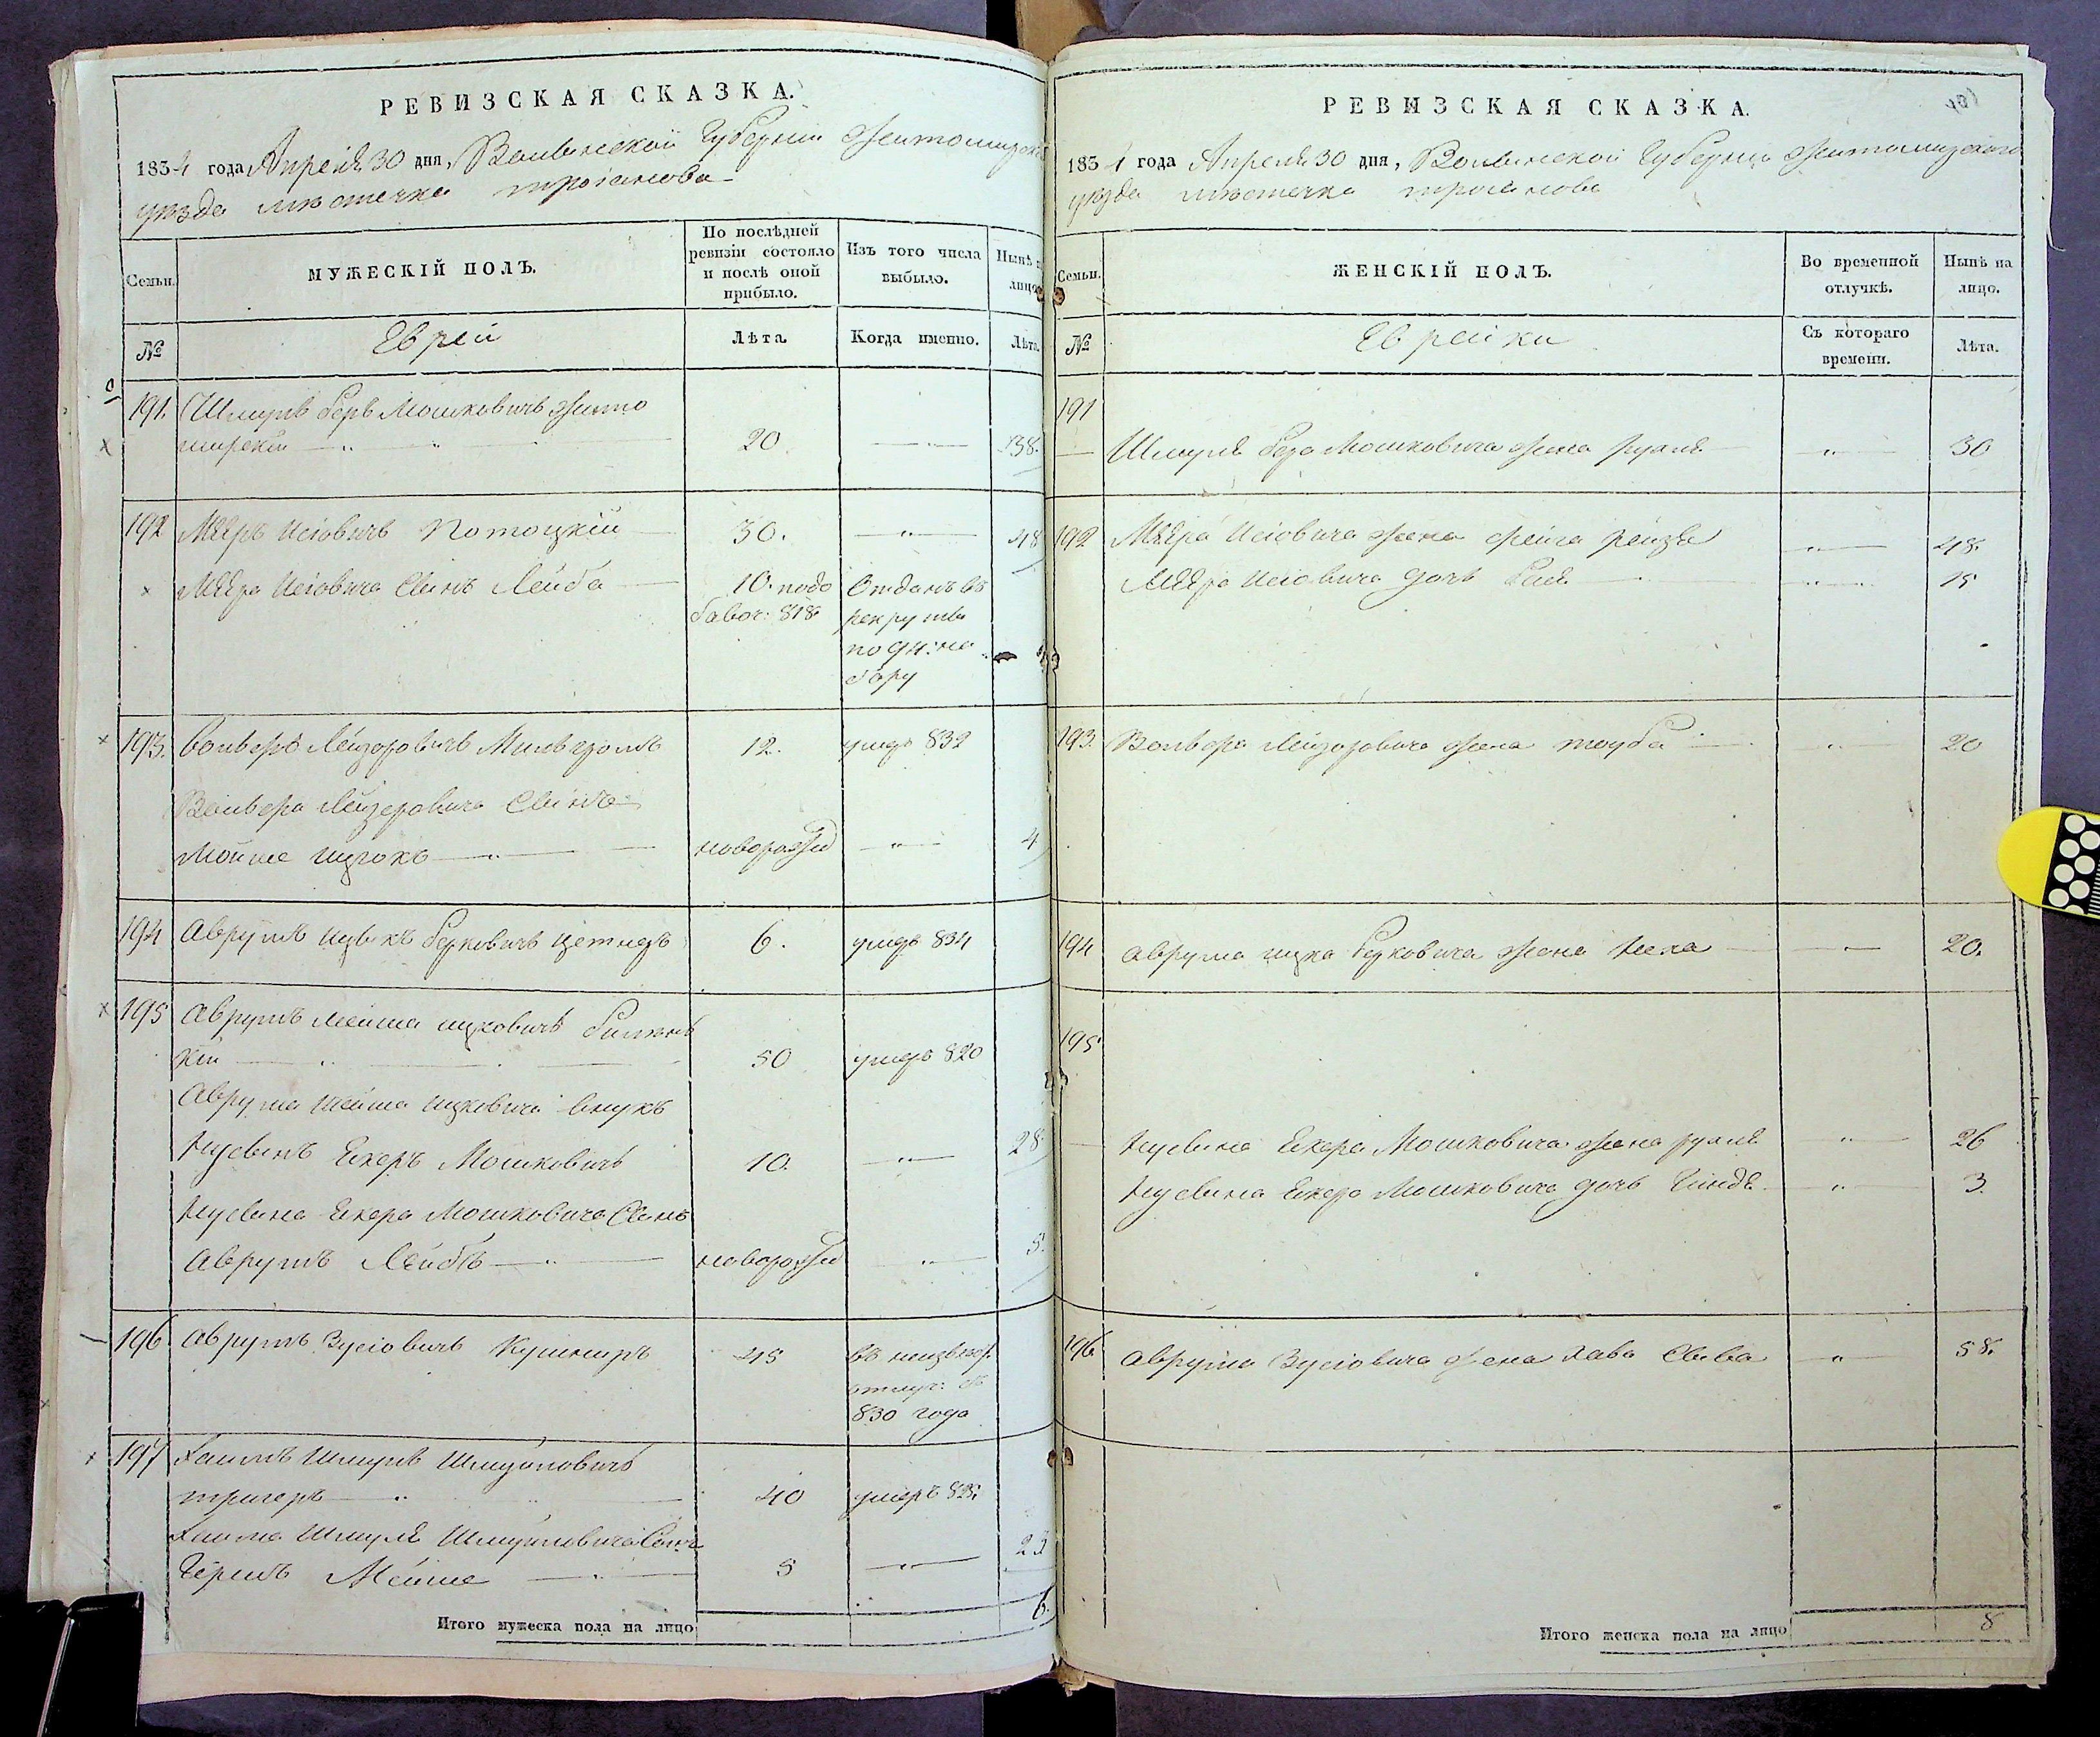 РЕВИЗСКАЯ СКАЗКА.
1834 года Апреля 30 дня, Волынской Губернии Житомирска
уѣзда мѣстечка Троіанова
Семьи.
МУЖЕСКІЙ ПОЛЪ.
По послѣдней
ревизіи состояло
и послѣ оной
прибыло.
Изъ того числа
выбыло.
Нынѣ н
лицо
№
Еврей
Лѣта.
Когда именно.
Лѣта.
191. Шмуль Беръ Мошковичъ Жито
мирскій 20. 38.
192 Мееръ Іосіовичъ Потоцкій 30. 48
Меера Іосіовича Сынъ Лейба 10. подо Отданъ въ
бавоч: 818 рекруты
по 94: на
бору
193. Вольверъ Лейзоровичъ Мильгромъ 12. умеръ 832
Вольвера Лейзеровича Сынъ
Мойше Ицхокъ новорожд 4
194 Аврумъ Ицыкъ Берковичъ 6. умеръ 834
195 Аврумъ Мейша Ицковичъ
кій 50 умеръ 820
Аврума Мейша Ицковича внукъ
Нусынъ Ехеръ Мошковичъ 10. 28
Нусына Ехера Мошковича Сынъ
Аврумъ Лейбъ новорожд 5.
196 Аврумъ Зусіовичъ Кушниръ 45 въ неизвѣст.
отлуч: съ
830 года
197 Хаимъ Шмуль Шмуйловичъ
тригеръ 40 умеръ 828.
Хаима Шмуля Шмуйловича Сынъ
Гершъ Мейше 5 23
Итого мужеска пола на лицо 6.
РЕВИЗСКАЯ СКАЗКА.
1834 года Апреля 30 дня, Волынской Губерніи Житомирского
уѣзда мѣстечка Троіанова
Семьи.
ЖЕНСКІЙ ПОЛЪ.
Во временной
отлучкѣ.
Нынѣ на
лицо.
№
Еврейки
Съ котораго
времени.
Лѣта.
191
Шмуля Бера Мошковича жена Рухля 30
192 Меера Іосіовича жена Фейга Рейзя 48.
Меера Іосіовича дочь 15
193. Вольвера Лейзоровича жена Тоуба 20
194 Аврума Ицка Берковича жена 20.
195
Нусына Ехера Мошковича жена Рухля 26
Нусына Ехера Мошковича дочь Гинда 3.
196 Аврума Зусіовича жена Хава Сыва 58.
Итого женска пола на лицо 8